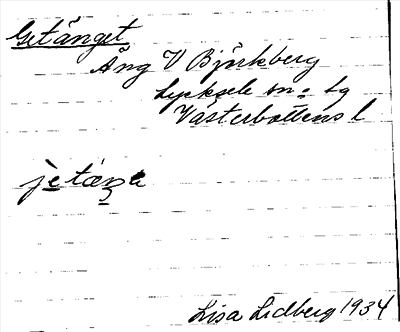 Getänget
Äng V Björkberg
Lycksele sn o lg
Västerbottens l
Lisa Lidberg 1934